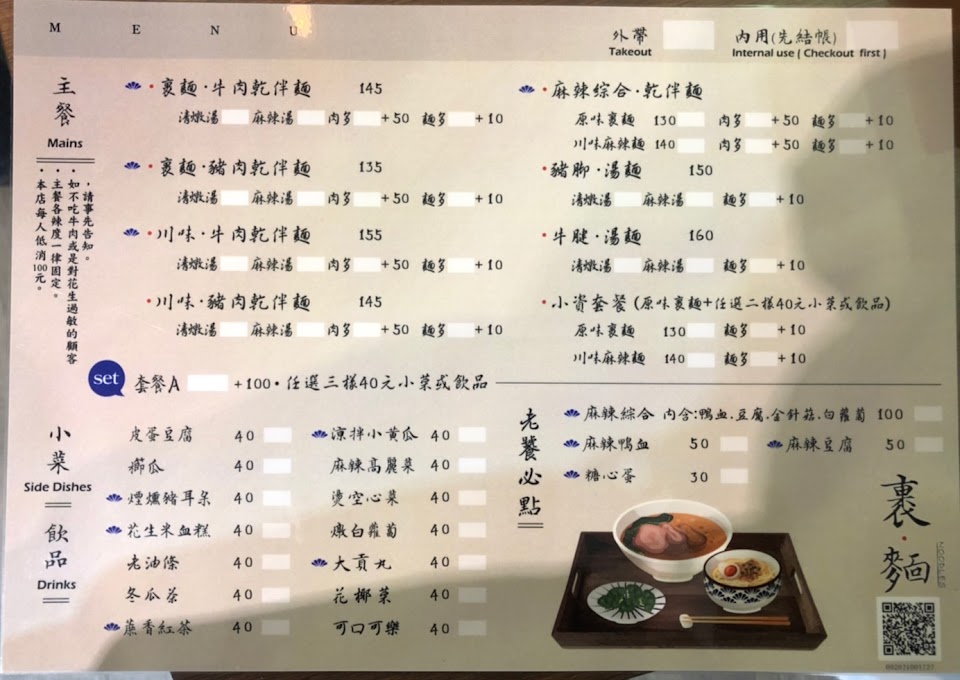 MENU
外帶
Takeout
內用(先結帳)
Internal use ( Checkout first )
主餐
Mains
・如不吃牛肉或是對花生過敏的顧客，請事先告知。
・主餐各辣度一律固定。
・本店每人低消100元。
・裹麵・牛肉乾伴麵 145
清燉湯 麻辣湯 肉多 +50 麵多 +10
・裹麵・豬肉乾伴麵 135
清燉湯 麻辣湯 肉多 +50 麵多 +10
・川味・牛肉乾伴麵 155
清燉湯 麻辣湯 肉多 +50 麵多 +10
・川味・豬肉乾伴麵 145
清燉湯 麻辣湯 肉多 +50 麵多 +10
・麻辣綜合・乾伴麵
原味裹麵 130 肉多 +50 麵多 +10
川味麻辣麵 140 肉多 +50 麵多 +10
・豬腳・湯麵 150
清燉湯 麻辣湯 麵多 +10
・牛腱・湯麵 160
清燉湯 麻辣湯 麵多 +10
・小資套餐 (原味裹麵+任選二樣40元小菜或飲品)
原味裹麵 130 麵多 +10
川味麻辣麵 140 麵多 +10
set 套餐A +100・任選三樣40元小菜或飲品
小菜
Side Dishes
飲品
Drinks
皮蛋豆腐 40
櫛瓜 40
煙燻豬耳朵 40
花生米血糕 40
老油條 40
冬瓜茶 40
蔗香紅茶 40
涼拌小黃瓜 40
麻辣高麗菜 40
燙空心菜 40
燉白蘿蔔 40
大貢丸 40
花椰菜 40
可口可樂 40
老饕必點
麻辣綜合 內含:鴨血.豆腐.金針菇.白蘿蔔 100
麻辣鴨血 50
麻辣豆腐 50
糖心蛋 30
裹・麵
NOODLES